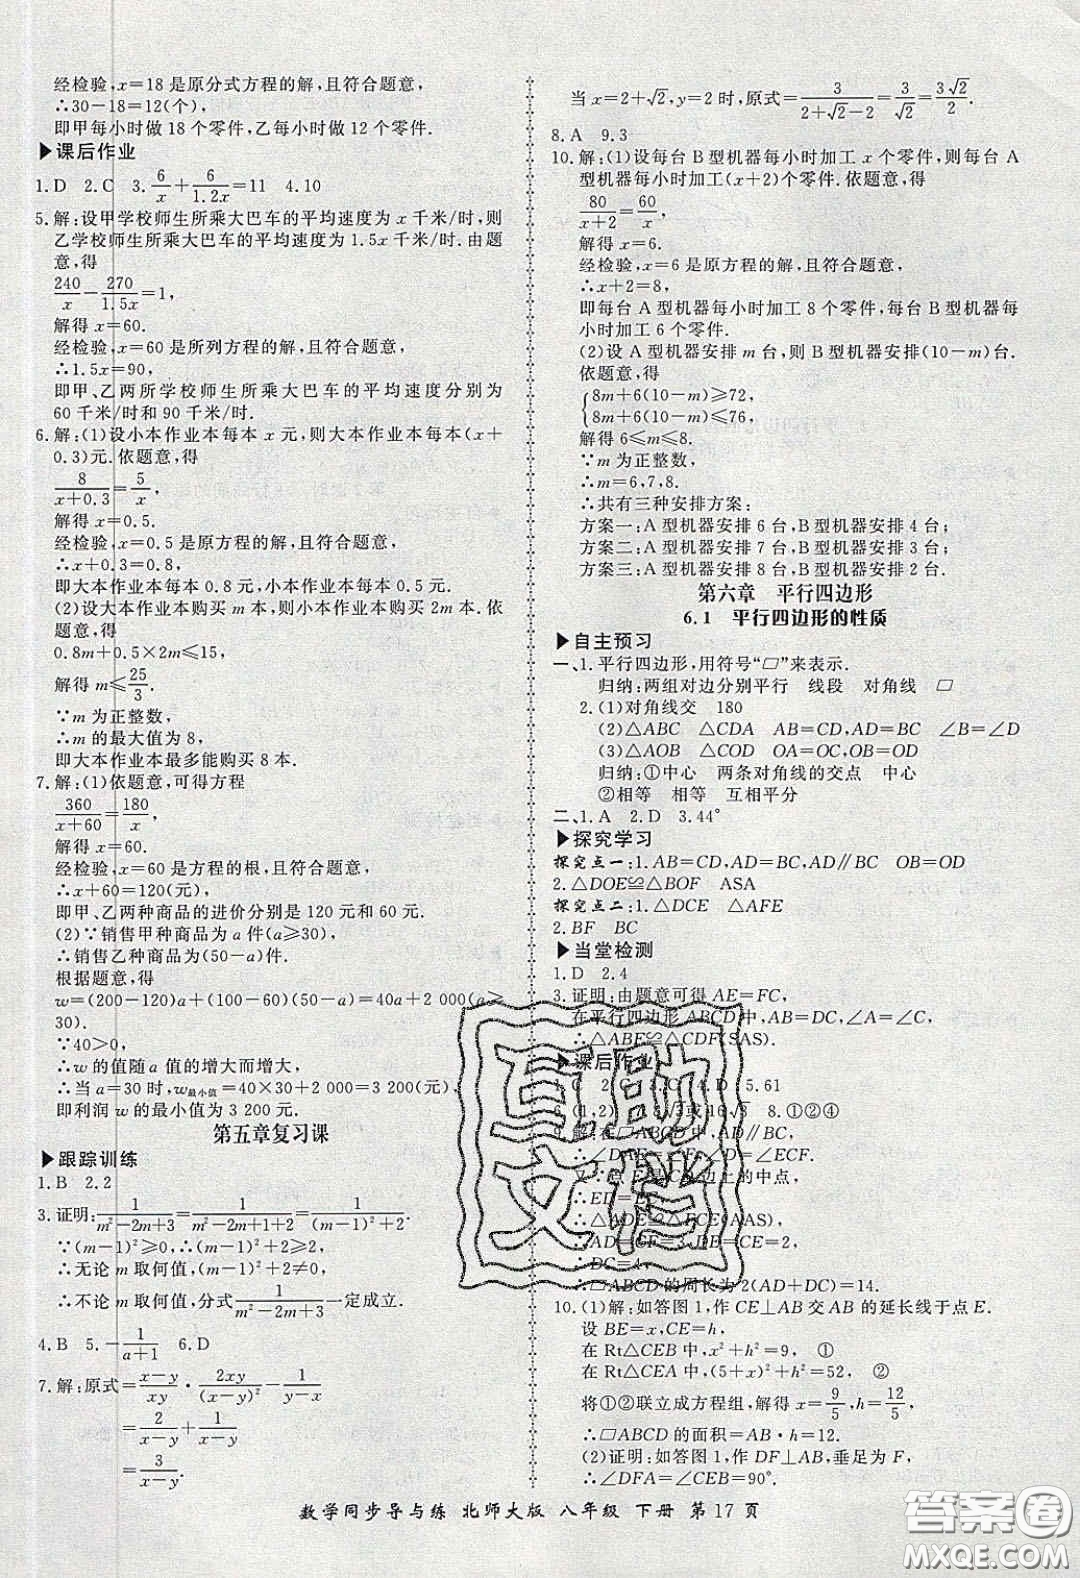 经检验,x=18是原分式方程的解,且符合题意,
∴30-18=12(个),
即甲每小时做18个零件,乙每小时做12个零件.
▶课后作业
1.D 2.C 3.6/x+6/1.2x=11 4.10
5.解:设甲学校师生所乘大巴车的平均速度为x千米/时,则
乙学校师生所乘大巴车的平均速度为1.5x千米/时.由题
意,得
240/x-270/1.5x=1,
解得x=60.
经检验,x=60是所列方程的解,且符合题意,
∴1.5x=90,
即甲、乙两所学校师生所乘大巴车的平均速度分别为
60千米/时和90千米/时.
6.解:(1)设小本作业本每本x元,则大本作业本每本(x+
0.3)元.依题意,得
8/(x+0.3)=5/x,
解得x=0.5.
经检验,x=0.5是原方程的解,且符合题意,
∴x+0.3=0.8,
即大本作业本每本0.8元,小本作业本每本0.5元.
(2)设大本作业本购买m本,则小本作业本购买2m本.依
题意,得
0.8m+0.5×2m≤15,
解得m≤25/3.
∵m为正整数,
∴m的最大值为8,
即大本作业本最多能购买8本.
7.解:(1)依题意,可得方程
360/(x+60)=180/x,
解得x=60.
经检验,x=60是方程的根,且符合题意,
∴x+60=120(元),
即甲、乙两种商品的进价分别是120元和60元.
(2)∵销售甲种商品为a件(a≥30),
∴销售乙种商品为(50-a)件.
根据题意,得
w=(200-120)a+(100-60)(50-a)=40a+2 000(a≥
30).
∵40>0,
∴w的值随a值的增大而增大,
∴当a=30时,w最小值=40×30+2 000=3 200(元),
即利润w的最小值为3 200元.
第五章复习课
▶跟踪训练
1.B 2.2
3.证明:1/(m²-2m+3)=1/(m²-2m+1+2)=1/((m-1)²+2).
∵(m-1)²≥0,∴(m-1)²+2≥2,
∴无论m取何值,(m-1)²+2>0,
∴不论m取何值,分式1/(m²-2m+3)一定成立.
4.B 5.-1/(a+1) 6.D
7.解:原式=(x-y)/xy·2xy/(x-y)²-1/(y-x)
=2/(x-y)+1/(x-y)
=3/(x-y).
当x=2+√2,y=2时,原式=3/(2+√2-2)=3/√2=3√2/2.
8.A 9.3
10.解:(1)设每台B型机器每小时加工x个零件,则每台A
型机器每小时加工(x+2)个零件.依题意,得
80/(x+2)=60/x,
解得x=6.
经检验,x=6是原方程的解,且符合题意,
∴x+2=8,
即每台A型机器每小时加工8个零件,每台B型机器每
小时加工6个零件.
(2)设A型机器安排m台,则B型机器安排(10-m)台.
依题意,得
{8m+6(10-m)≥72,
8m+6(10-m)≤76,
解得6≤m≤8.
∵m为正整数,
∴m=6,7,8.
∴共有三种安排方案:
方案一:A型机器安排6台,B型机器安排4台;
方案二:A型机器安排7台,B型机器安排3台;
方案三:A型机器安排8台,B型机器安排2台.
第六章 平行四边形
6.1 平行四边形的性质
▶自主预习
一、1.平行四边形,用符号“▱”来表示.
归纳:两组对边分别平行 线段 对角线 ▱
2.(1)对角线交 180
(2)△ABC △CDA AB=CD,AD=BC ∠B=∠D
(3)△AOB △COD OA=OC,OB=OD
归纳:①中心 两条对角线的交点 中心
②相等 相等 互相平分
二、1.A 2.D 3.44°
▶探究学习
探究点一:1.AB=CD,AD=BC,AD∥BC OB=OD
2.△DOE≌△BOF ASA
探究点二:1.△DCE △AFE
2.BF BC
▶当堂检测
1.D 2.4
3.证明:由题意可得AE=FC,
在平行四边形ABCD中,AB=DC,∠A=∠C,
∴△ABE≌△CDF(SAS).
▶课后作业
1.C 2.C 3.C 4.D 5.61
6.(1,2) 8.①②④
9.解:在▱ABCD中,AD∥BC,
∴∠DAE=∠F,∠D=∠ECF.
上的中点,
∴ED=EC
∴△ADE≌△FCE(AAS),
∴AD=CE=2,
∴DC=4,
∴▱ABCD的周长为2(AD+DC)=14.
10.(1)解:如答图1,作CE⊥AB交AB的延长线于点E.
设BE=x,CE=h,
在Rt△CEB中,x²+h²=9, ①
在Rt△CEA中,(5+x)²+h²=52, ②
将①②联立成方程组,解得x=9/5,h=12/5,
∴▱ABCD的面积=AB·h=12.
(2)证明:如答图1,作DF⊥AB,垂足为F,
∴∠DFA=∠CEB=90°.
互助
文档
数学同步导与练 北师大版 八年级 下册 第17页
答案圈
MXQE.COM